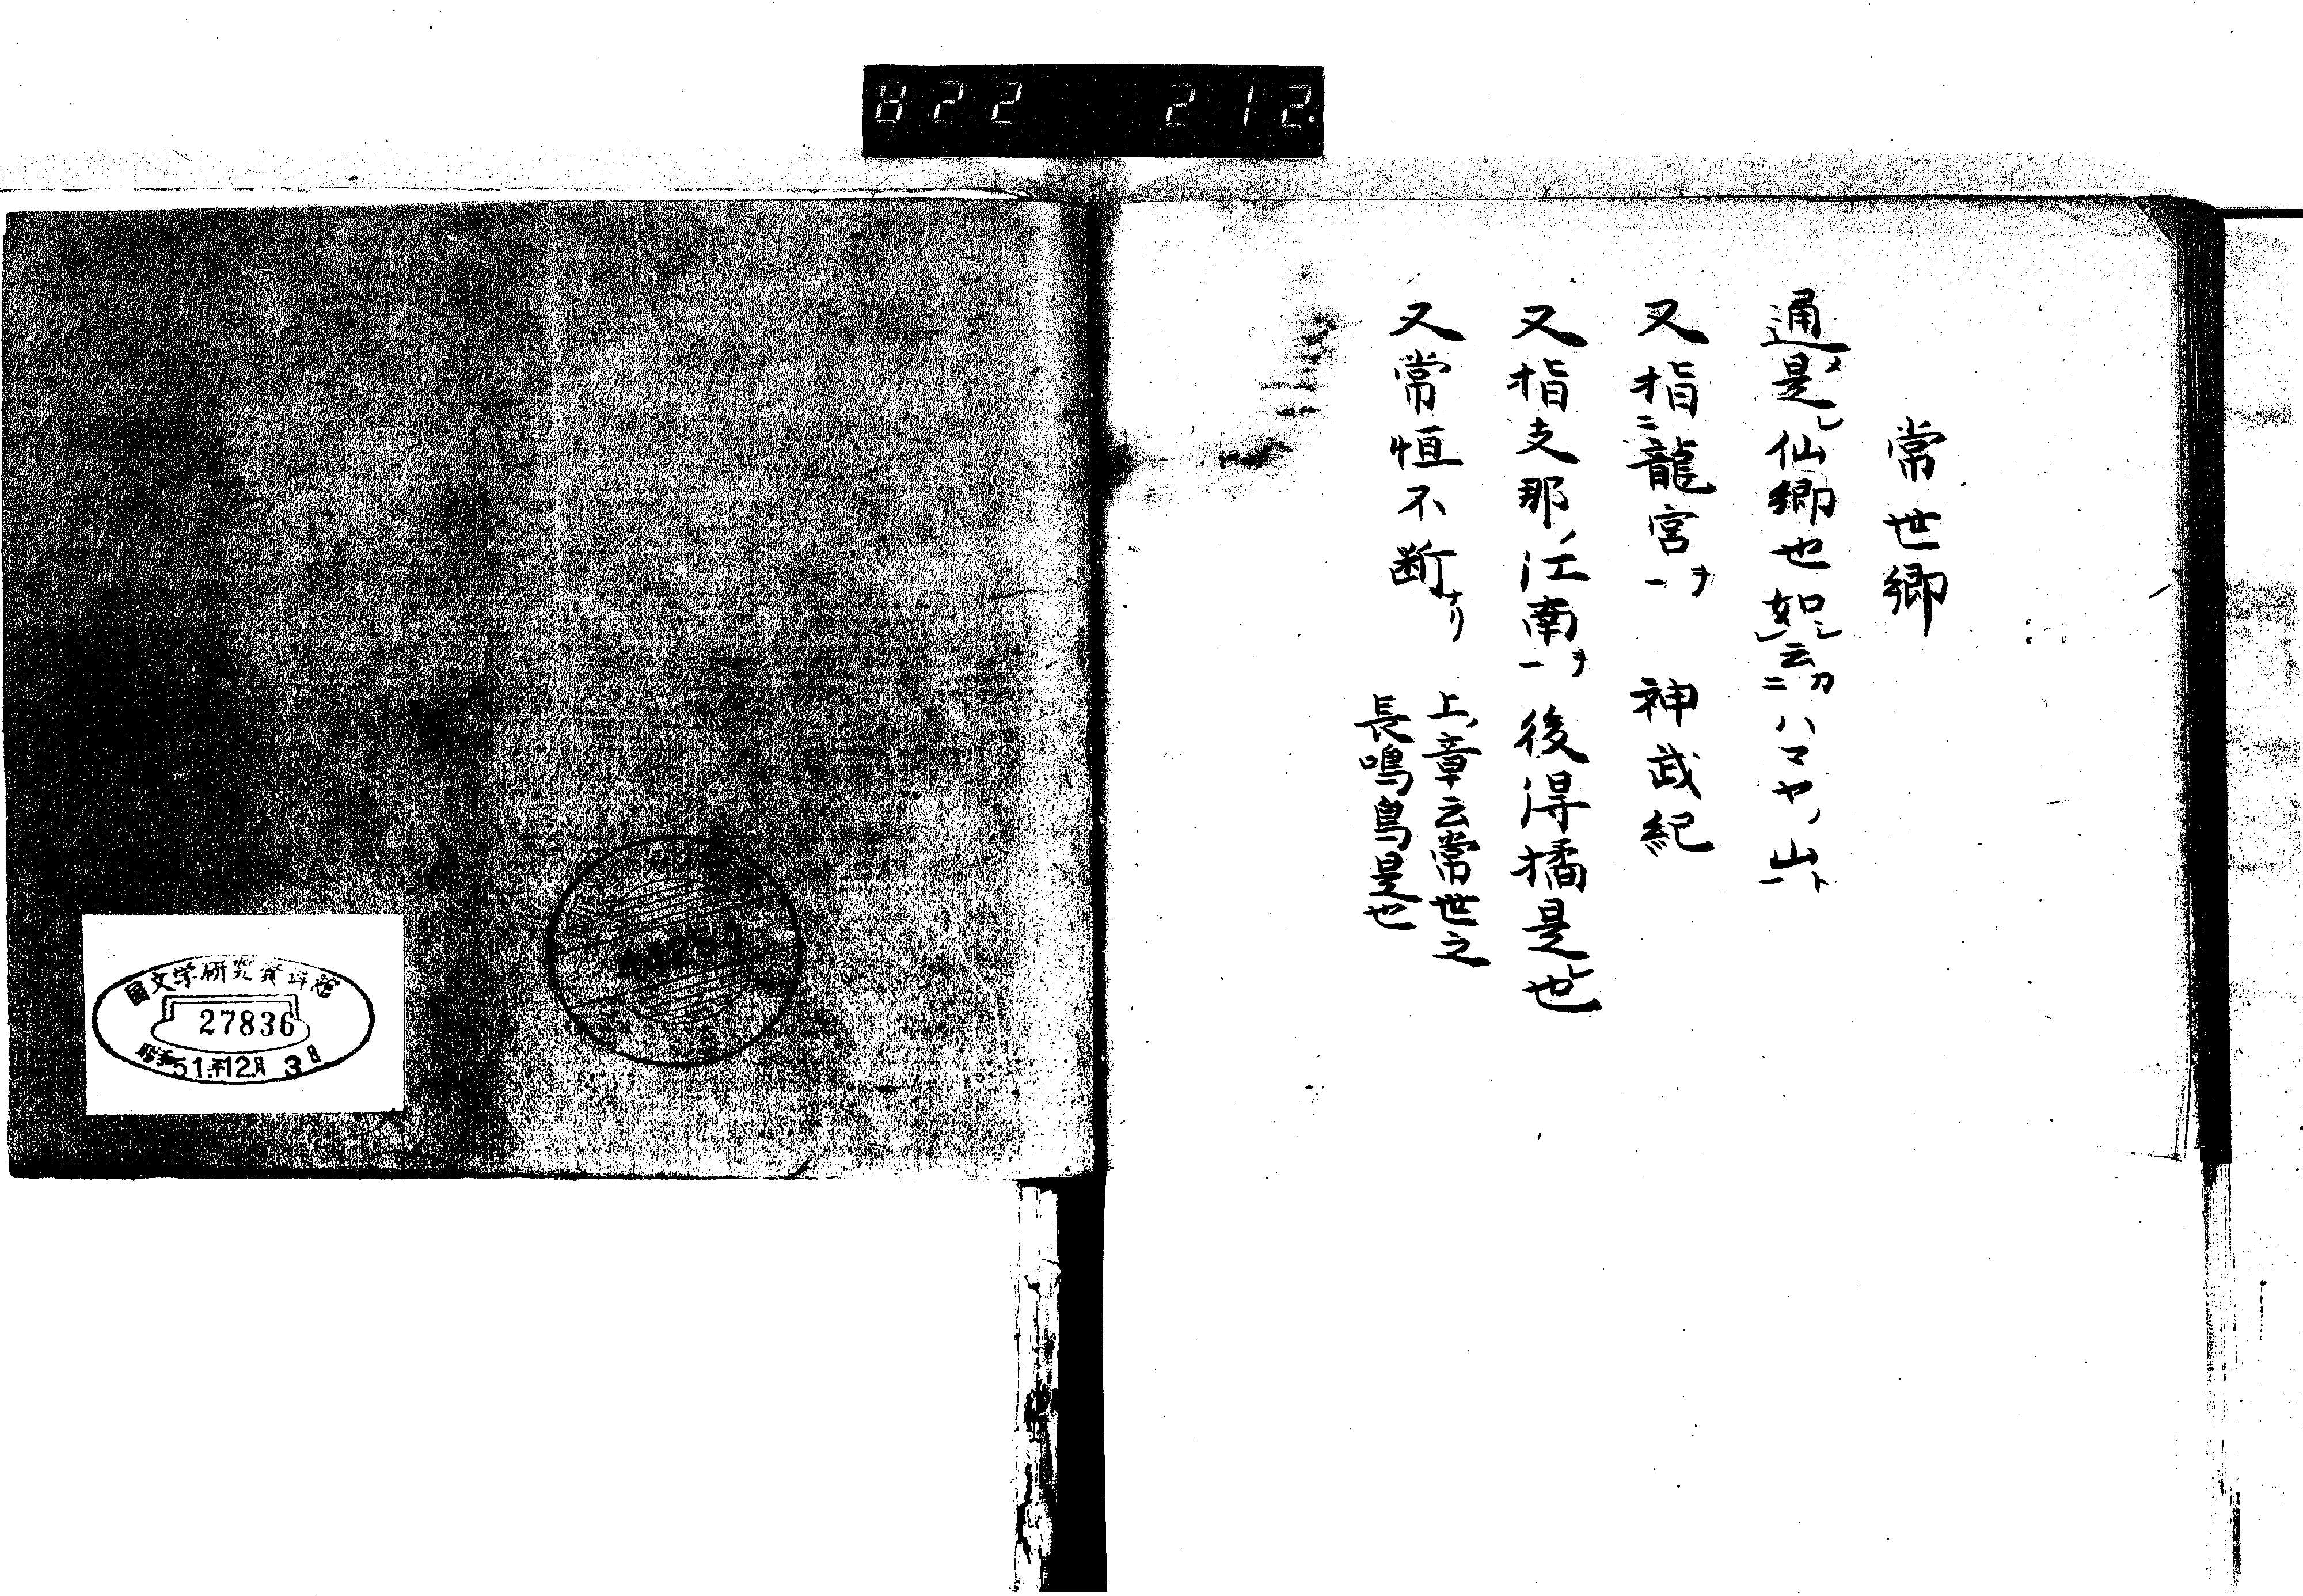 822 212.
常世郷
通メ是レ仙郷也如シレ云カ二ハマヤノ山ト一
又指二龍宮ヲ一 神武紀
又指支那ノ江南ヲ一後得橘是也
又常恒不断ナリ 上ノ章云常世之
長鳴鳥是也
国文学研究資料館
27836
昭和51年12月3日